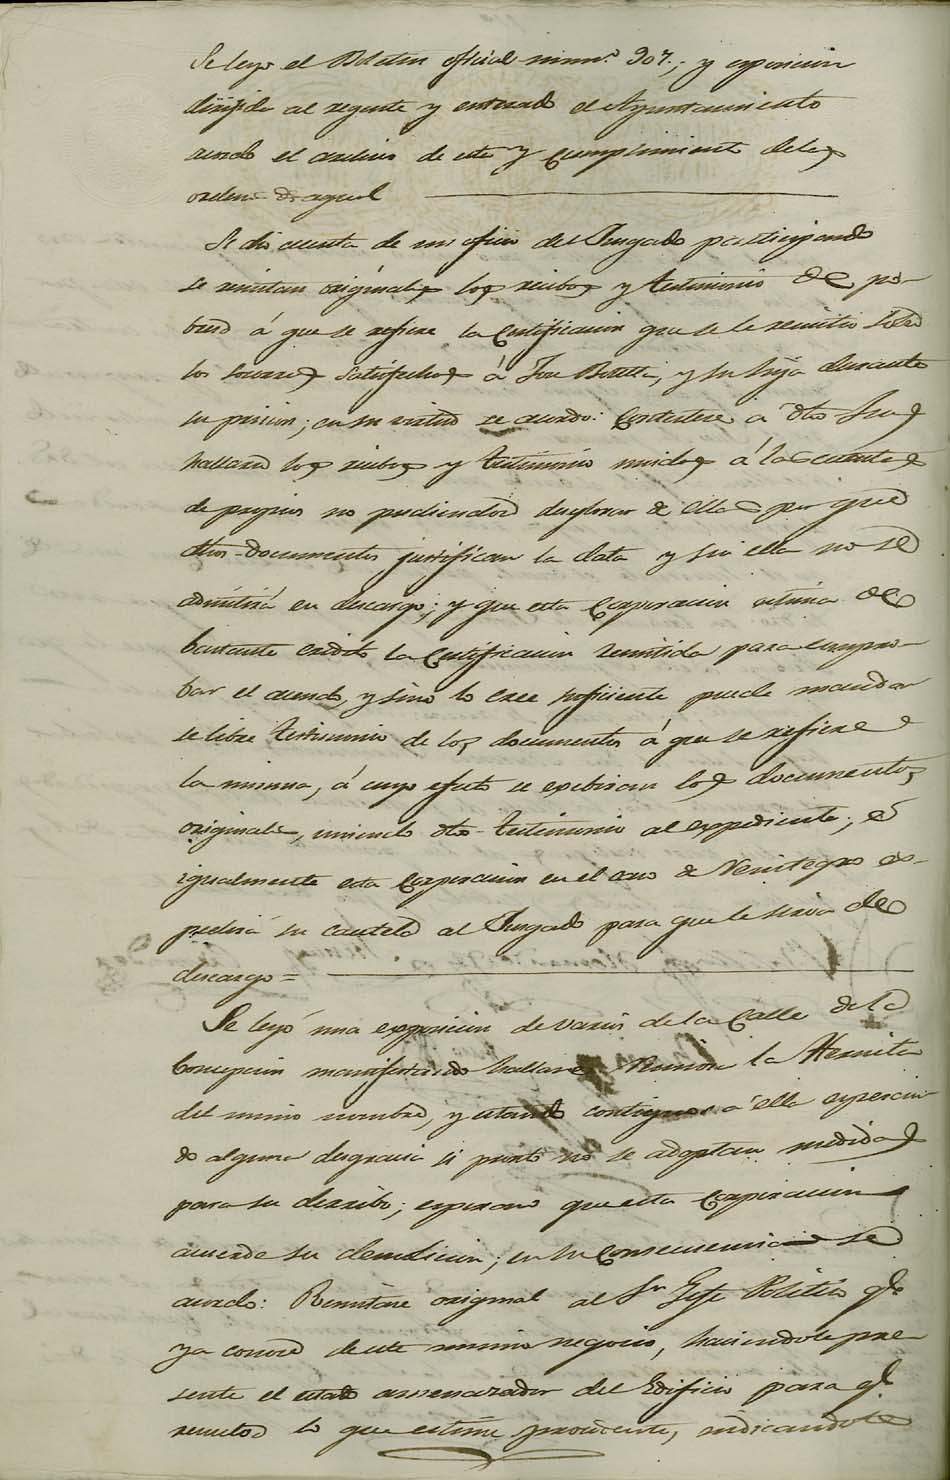 Se leyo el Boletin oficial num.º 307.; y esposicion
dirijida al regente y enterado el Ayuntamiento
acordo el archivo de esta y cumplimiento de las
ordenes de aquel
Se dio cuenta de un oficio del Juzgado participando
se remitan originales los recibos y testimonio de po-
breza á que se refiere la Certificacion que se le remitio sobre
los socorros satisfechos á Jose Botella, y su hija durante
su prision; en su virtud se acordo: Contestese a dho Sr
hallarse los recibos y testimonio unidos á las cuentas
de propios no pudiendose desglosar de ellas por que
dhos documentos justifican la data y sin ella no se
admitirá en descargo; y que esta Corporacion estima de
bastante credito la Certificacion remitida para compro-
bar el acuerdo, y sino lo cree suficiente puede mandar
se libre testimonio de los documentos á que se refiere
la misma, á cuyo efecto se exebiran los documentos
originales, uniendo dho testimonio al expediente; é
igualmente esta Corporacion en el caso de Reintegro es-
pedirá su cautela al Juzgado para que le sirva de
descargo =
Se leyó una exposicion de varios de la Calle de la
Concepcion manifestando hallarse Ruinosa la Hermita
del mismo nombre, y estando contiguos á ella esperan-
do alguna desgracia si pronto no se adoptan medidas
para su derribo; esperan que esta Corporacion
acuerde su demolicion; en su Consecuencia se
acordo: Remitase original al Sr Gefe Politico qe
ya conoce de este mismo negocio, haciendole pre
sente el estado amenazador del Edificio para qe
resuelva lo que estime procedente, indicandole